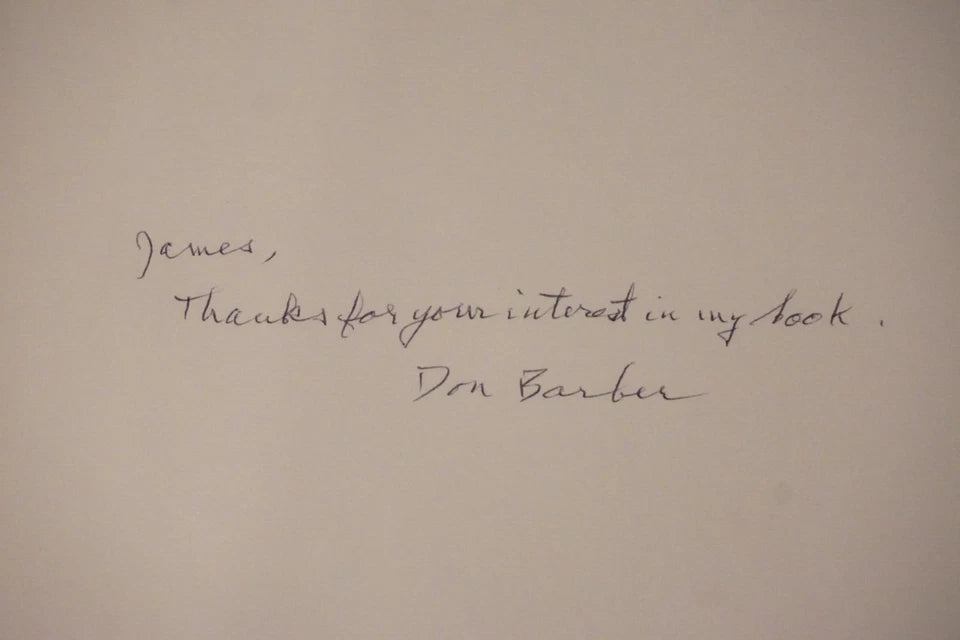 James,
Thanks for your interest in my book.
Don Barber